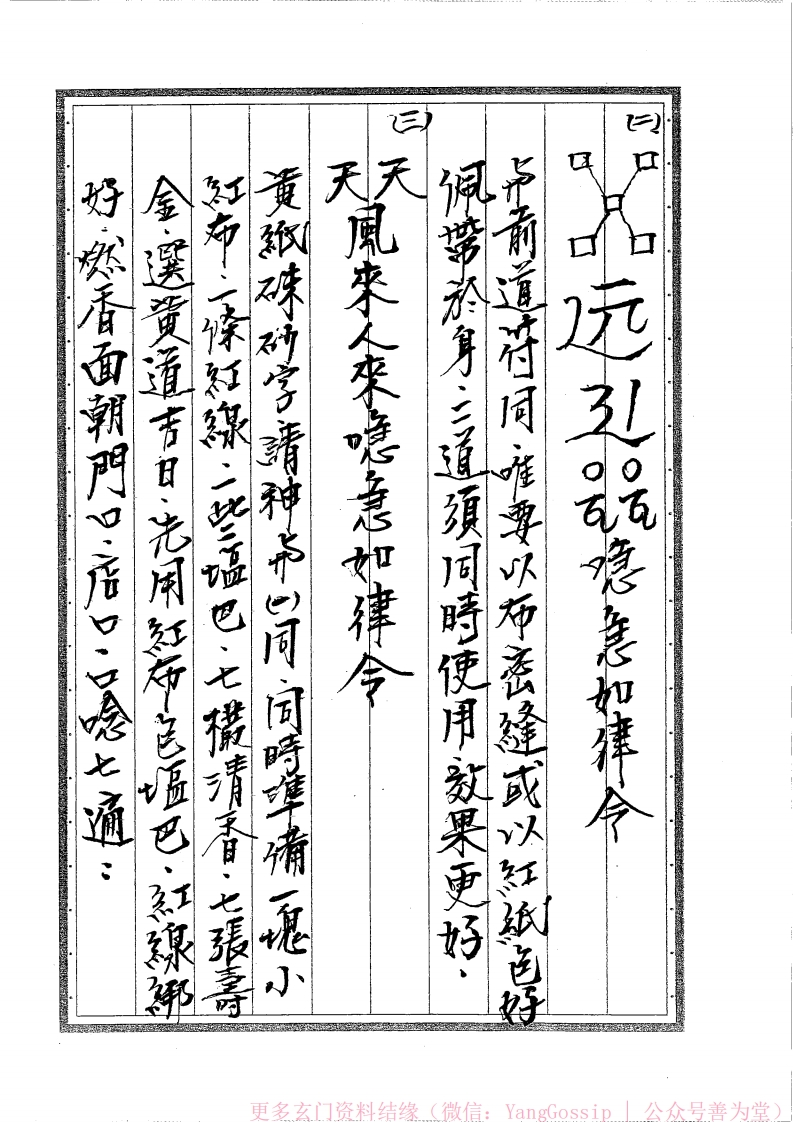 (二)
远引 唵急如律令
与前道符同、唯要以布密縫或以紅紙包好
佩帶於身、二道須同時使用效果更好、
(三)
天天風來人來唵急如律令
黃紙硃砂字請神与(一)同、同時準備一塊小
紅布、一條紅線、一些塩巴、七襪清香、七張壽
金、選黃道吉日、先用紅布包塩巴、紅線綁
好、燃香面朝門口、店口、口唸七遍：
更多玄门资料结缘（微信：YangGossip | 公众号善为堂）